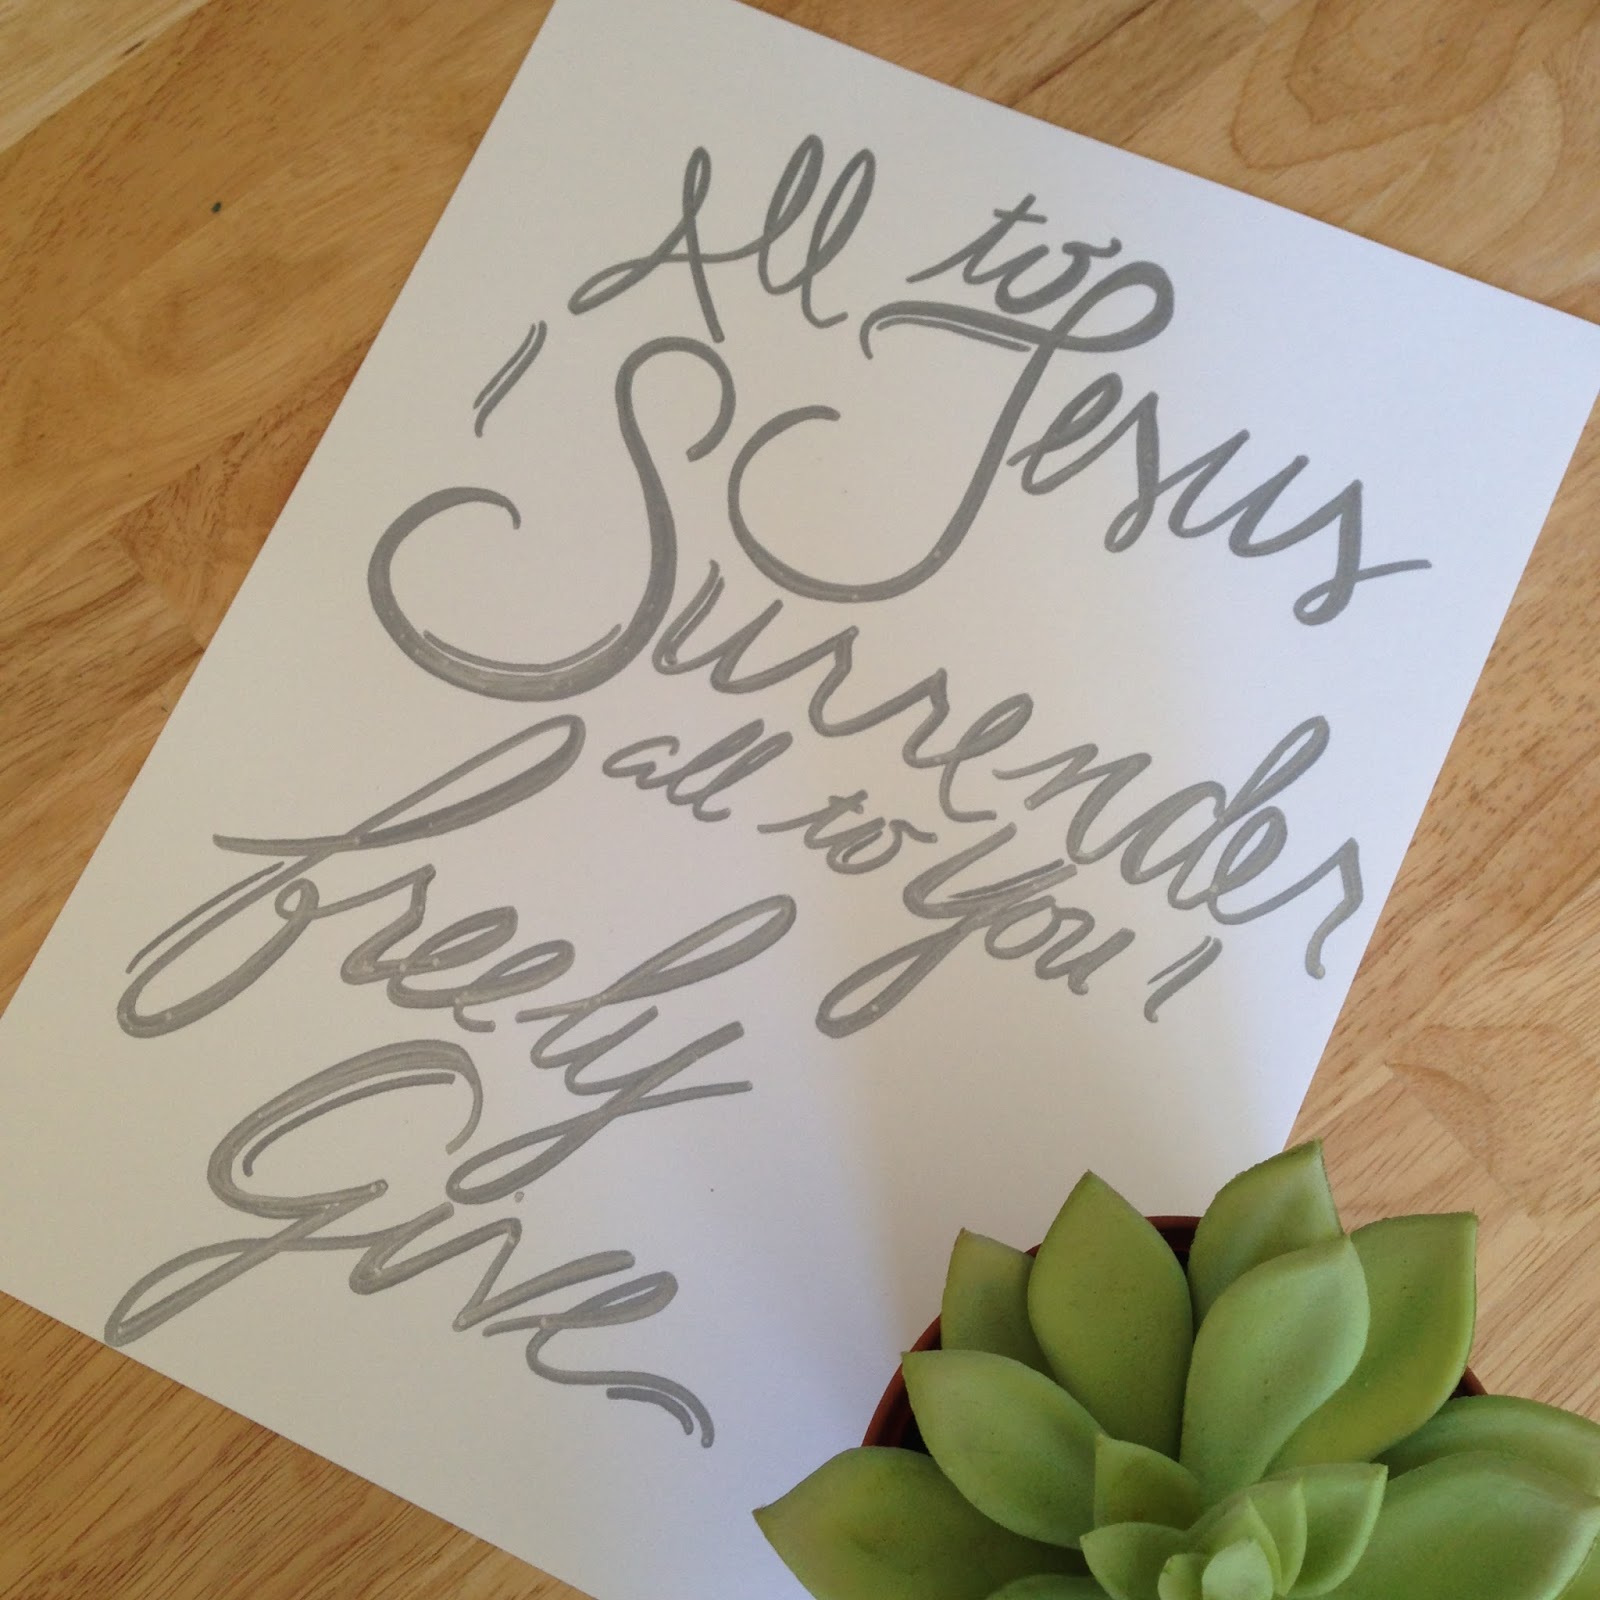 All to Jesus
I Surrender
all to You I
freely
Give